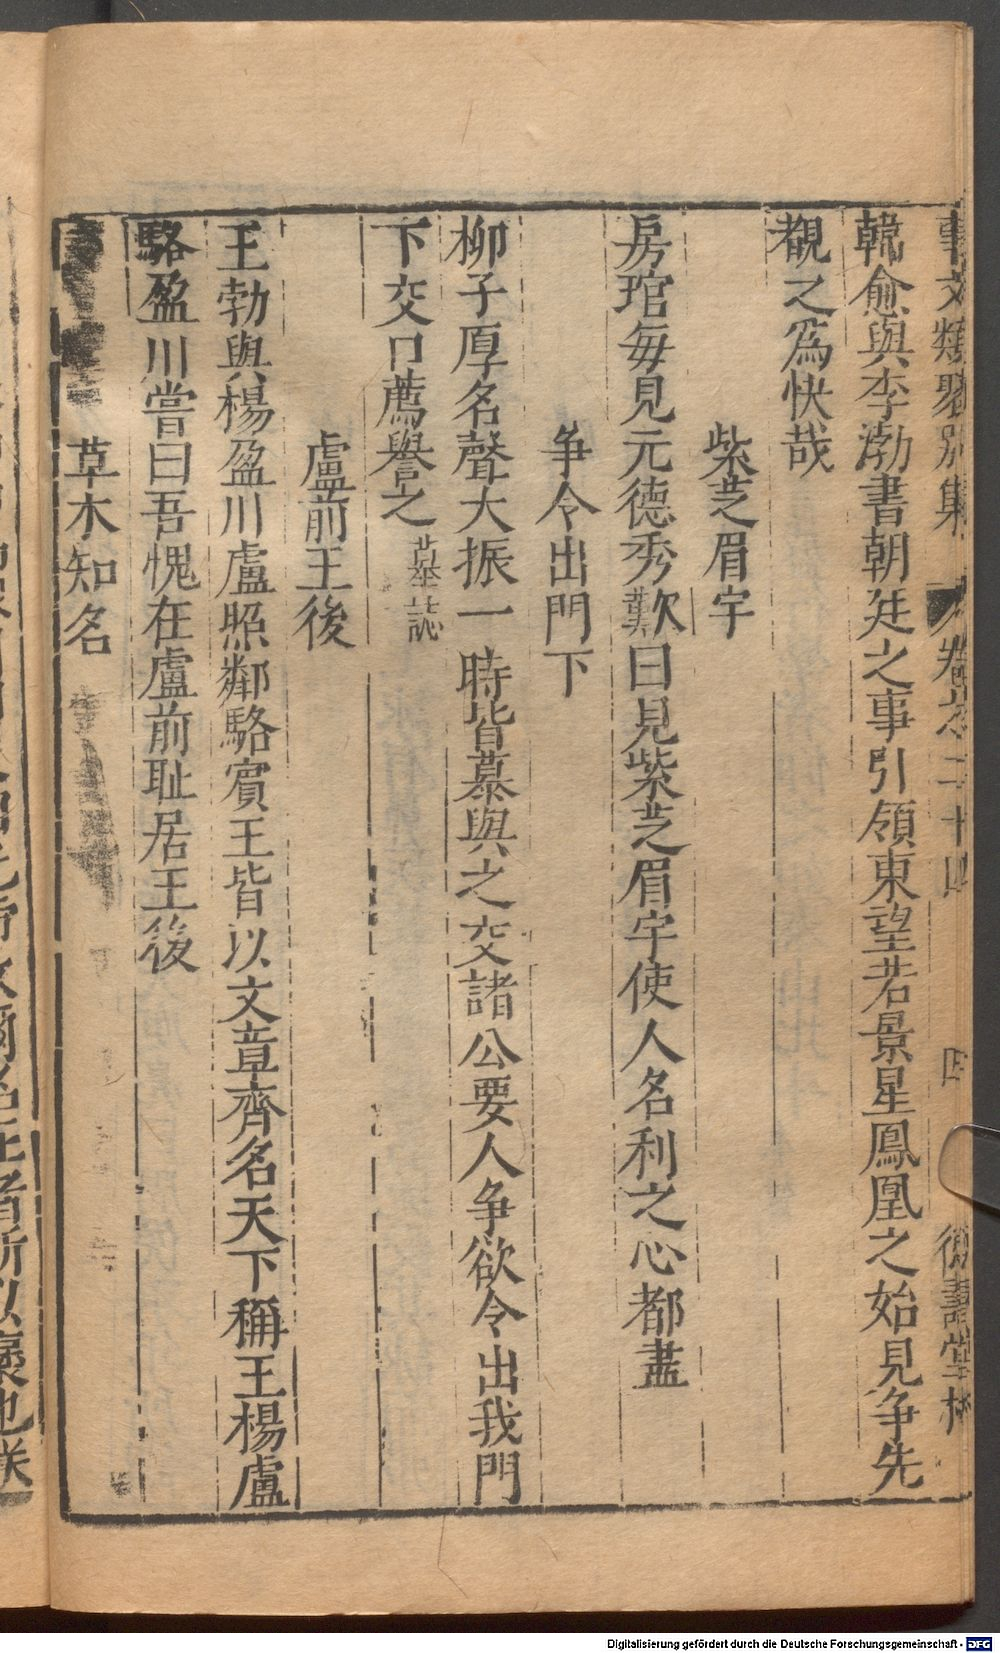 事文類聚別集 卷之二十四 四 德壽堂梓
韓愈與李渤書朝廷之事引領東望若景星鳳凰之始見争先
覩之為快哉
紫芝眉宇
房琯每見元德秀歎曰見紫芝眉宇使人名利之心都盡
争令出門下
柳子厚名聲大振一時皆慕與之交諸公要人争欲令出我門
下交口薦譽之墓誌
盧前王後
王勃與楊盈川盧照鄰駱賔王皆以文章齊名天下稱王楊盧
駱盈川嘗曰吾愧在盧前耻居王後
草木知名
Digitalisierung gefördert durch die Deutsche Forschungsgemeinschaft - DFG